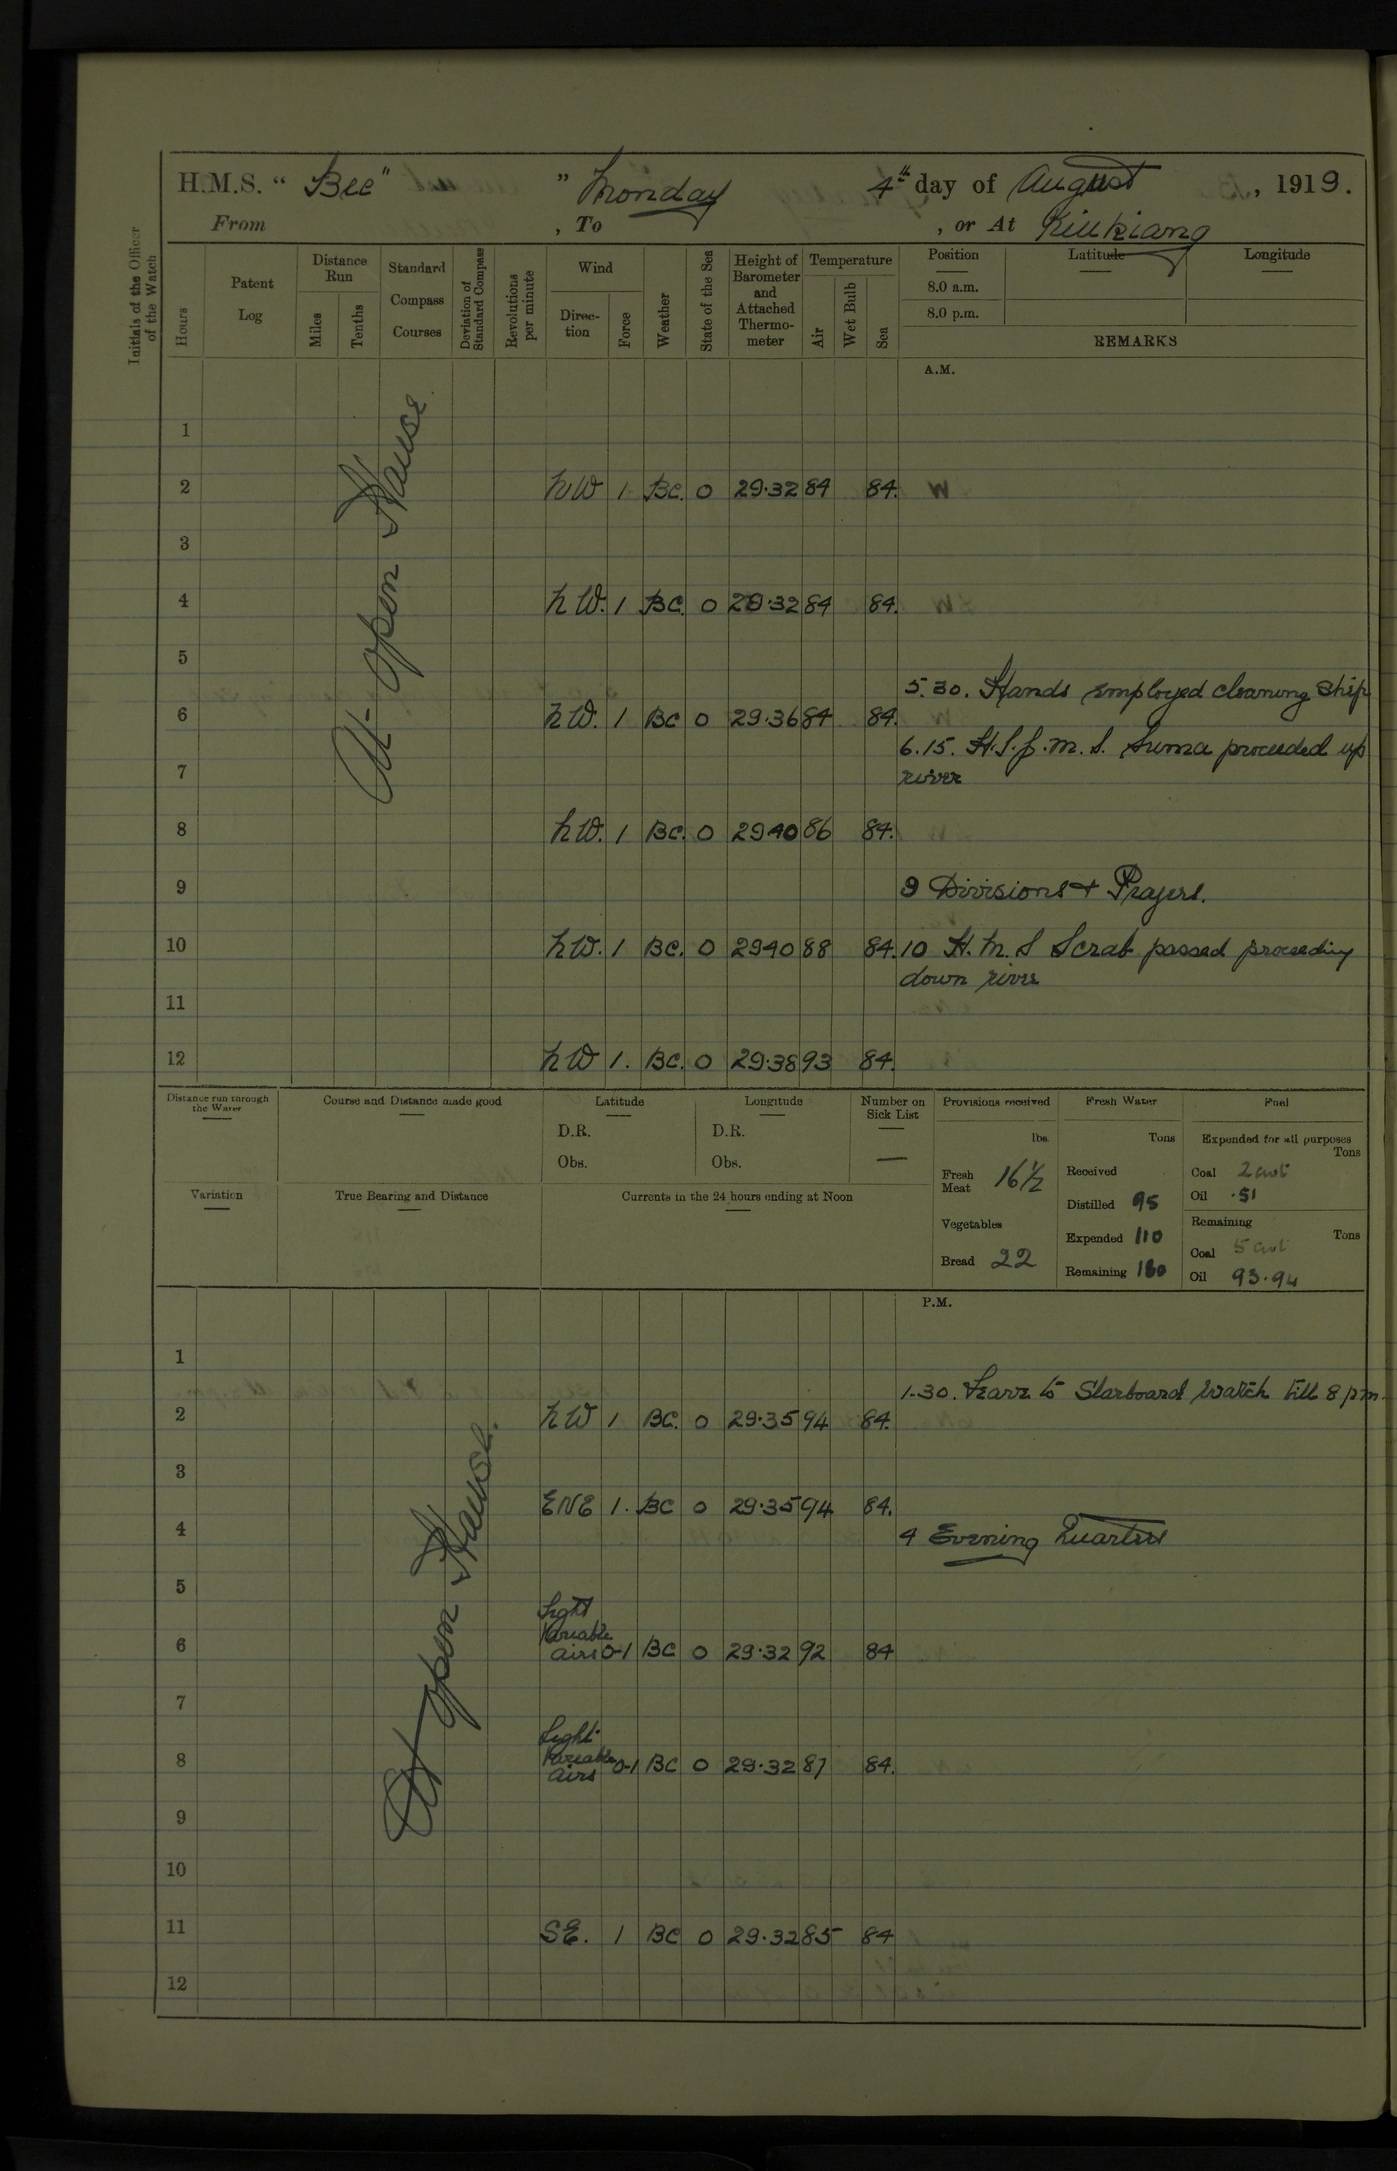 H.M.S. “ Bee” ” Monday 4th day of August , 1919.
From , To , or At Kiukiang
Initials of the Officer of the Watch
Hours
Patent Log
Distance Run
Miles
Tenths
Standard Compass Courses
Deviation of Standard Compass
Revolutions per minute
Wind
Direction
Force
Weather
State of the Sea
Height of Barometer and Attached Thermometer
Temperature
Air
Wet Bulb
Sea
Position
8.0 a.m.
8.0 p.m.
Latitude
Longitude
REMARKS
A.M.
At open Hawse
1
2 NW 1 BC. 0 29.32 84 84.
3
4 NW. 1 BC. 0 29.32 84 84.
5
5.30. Hands employed cleaning Ship
6 NW. 1 BC 0 29.36 84 84.
6.15. H.I.J.M.S. Suma proceeded up
7 river
8 NW. 1 BC. 0 2940 86 84.
9 9 Divisions + Prayers.
10 NW. 1 BC. 0 2940 88 84. 10 H.M.S Scrab passed proceeding
down river
11
12 NW 1. BC. 0 29.38 93 84.
Distance run through the Water
Course and Distance made good
Latitude
D.R.
Obs.
Longitude
D.R.
Obs.
Number on Sick List
—
Provisions received
lbs.
Fresh Meat 16 1/2
Vegetables
Bread 22
Fresh Water
Tons
Received
Distilled 95
Expended 110
Remaining 180
Fuel
Expended for all purposes
Tons
Coal 2 cwt
Oil .51
Remaining
Tons
Coal 5 cwt
Oil 93.94
Variation
True Bearing and Distance
Currents in the 24 hours ending at Noon
P.M.
At open Hawse.
1
1.30. Leave to Starboard Watch till 8 pm.
2 NW 1 BC. 0 29.35 94 84.
3
ENE 1. BC 0 29.35 94 84.
4 4 Evening Quarters
5
6 Light Variable airs 0-1 BC 0 29.32 92 84
7
8 Light Variable airs 0-1 BC 0 29.32 87 84.
9
10
11 SE. 1 BC 0 29.32 85 84
12